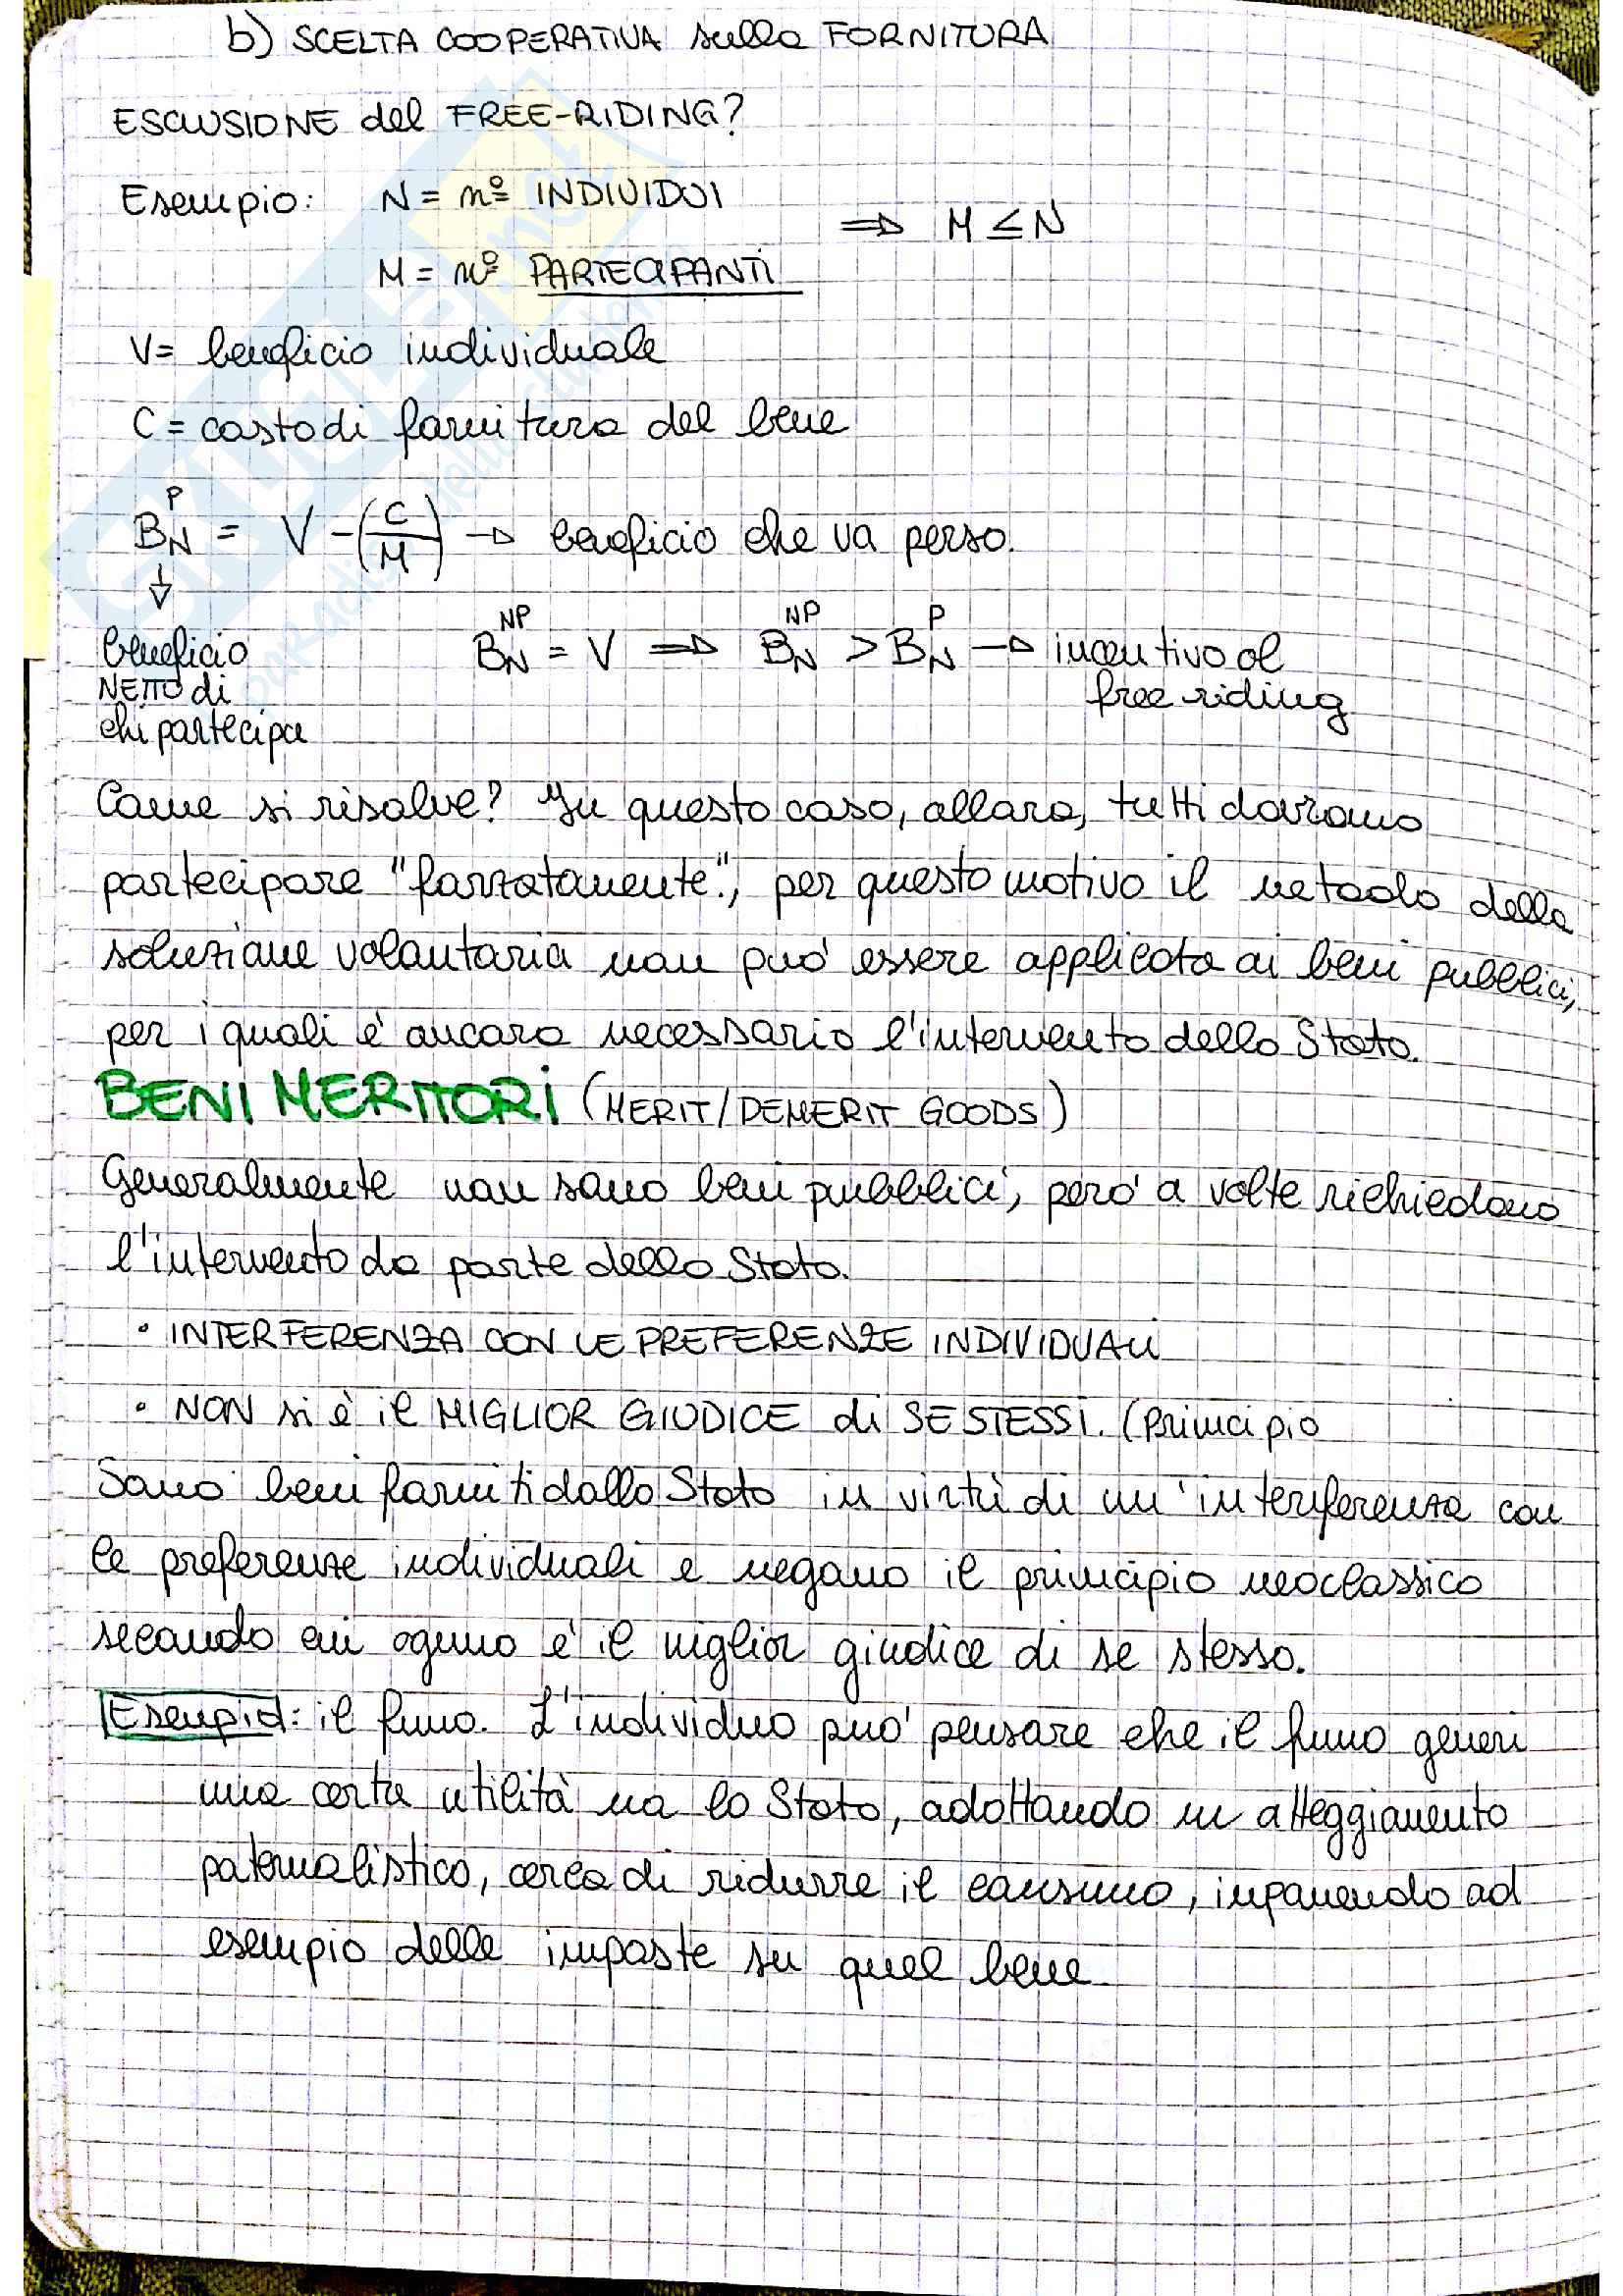 b) SCELTA COOPERATIVA sulla FORNITURA
ESCLUSIONE del FREE-RIDING?
Esempio: N = nº INDIVIDUI
⇒ M ≤ N
M = nº PARTECIPANTI
V = beneficio individuale
C = costo di fornitura del bene
B_N^P = V - (C/M) → beneficio che va perso.
↓
beneficio NETTO di chi partecipa
B_N^NP = V ⇒ B_N^NP > B_N^P → incentivo al free riding
Come si risolve? In questo caso, allora, tutti dovranno
partecipare "forzatamente", per questo motivo il metodo della
soluzione volontaria non può essere applicato ai beni pubblici,
per i quali è ancora necessario l'intervento dello Stato.
BENI MERITORI (MERIT/DEMERIT GOODS)
Generalmente non sono beni pubblici, però a volte richiedono
l'intervento da parte dello Stato.
· INTERFERENZA CON LE PREFERENZE INDIVIDUALI
· NON si è il MIGLIOR GIUDICE di SE STESSI. (principio
Sono beni forniti dallo Stato in virtù di un'interferenza con
le preferenze individuali e negano il principio neoclassico
secondo cui ognuno è il miglior giudice di se stesso.
Esempio: il fumo. L'individuo può pensare che il fumo generi
una certa utilità ma lo Stato, adottando un atteggiamento
paternalistico, cerca di ridurre il consumo, imponendo ad
esempio delle imposte su quel bene